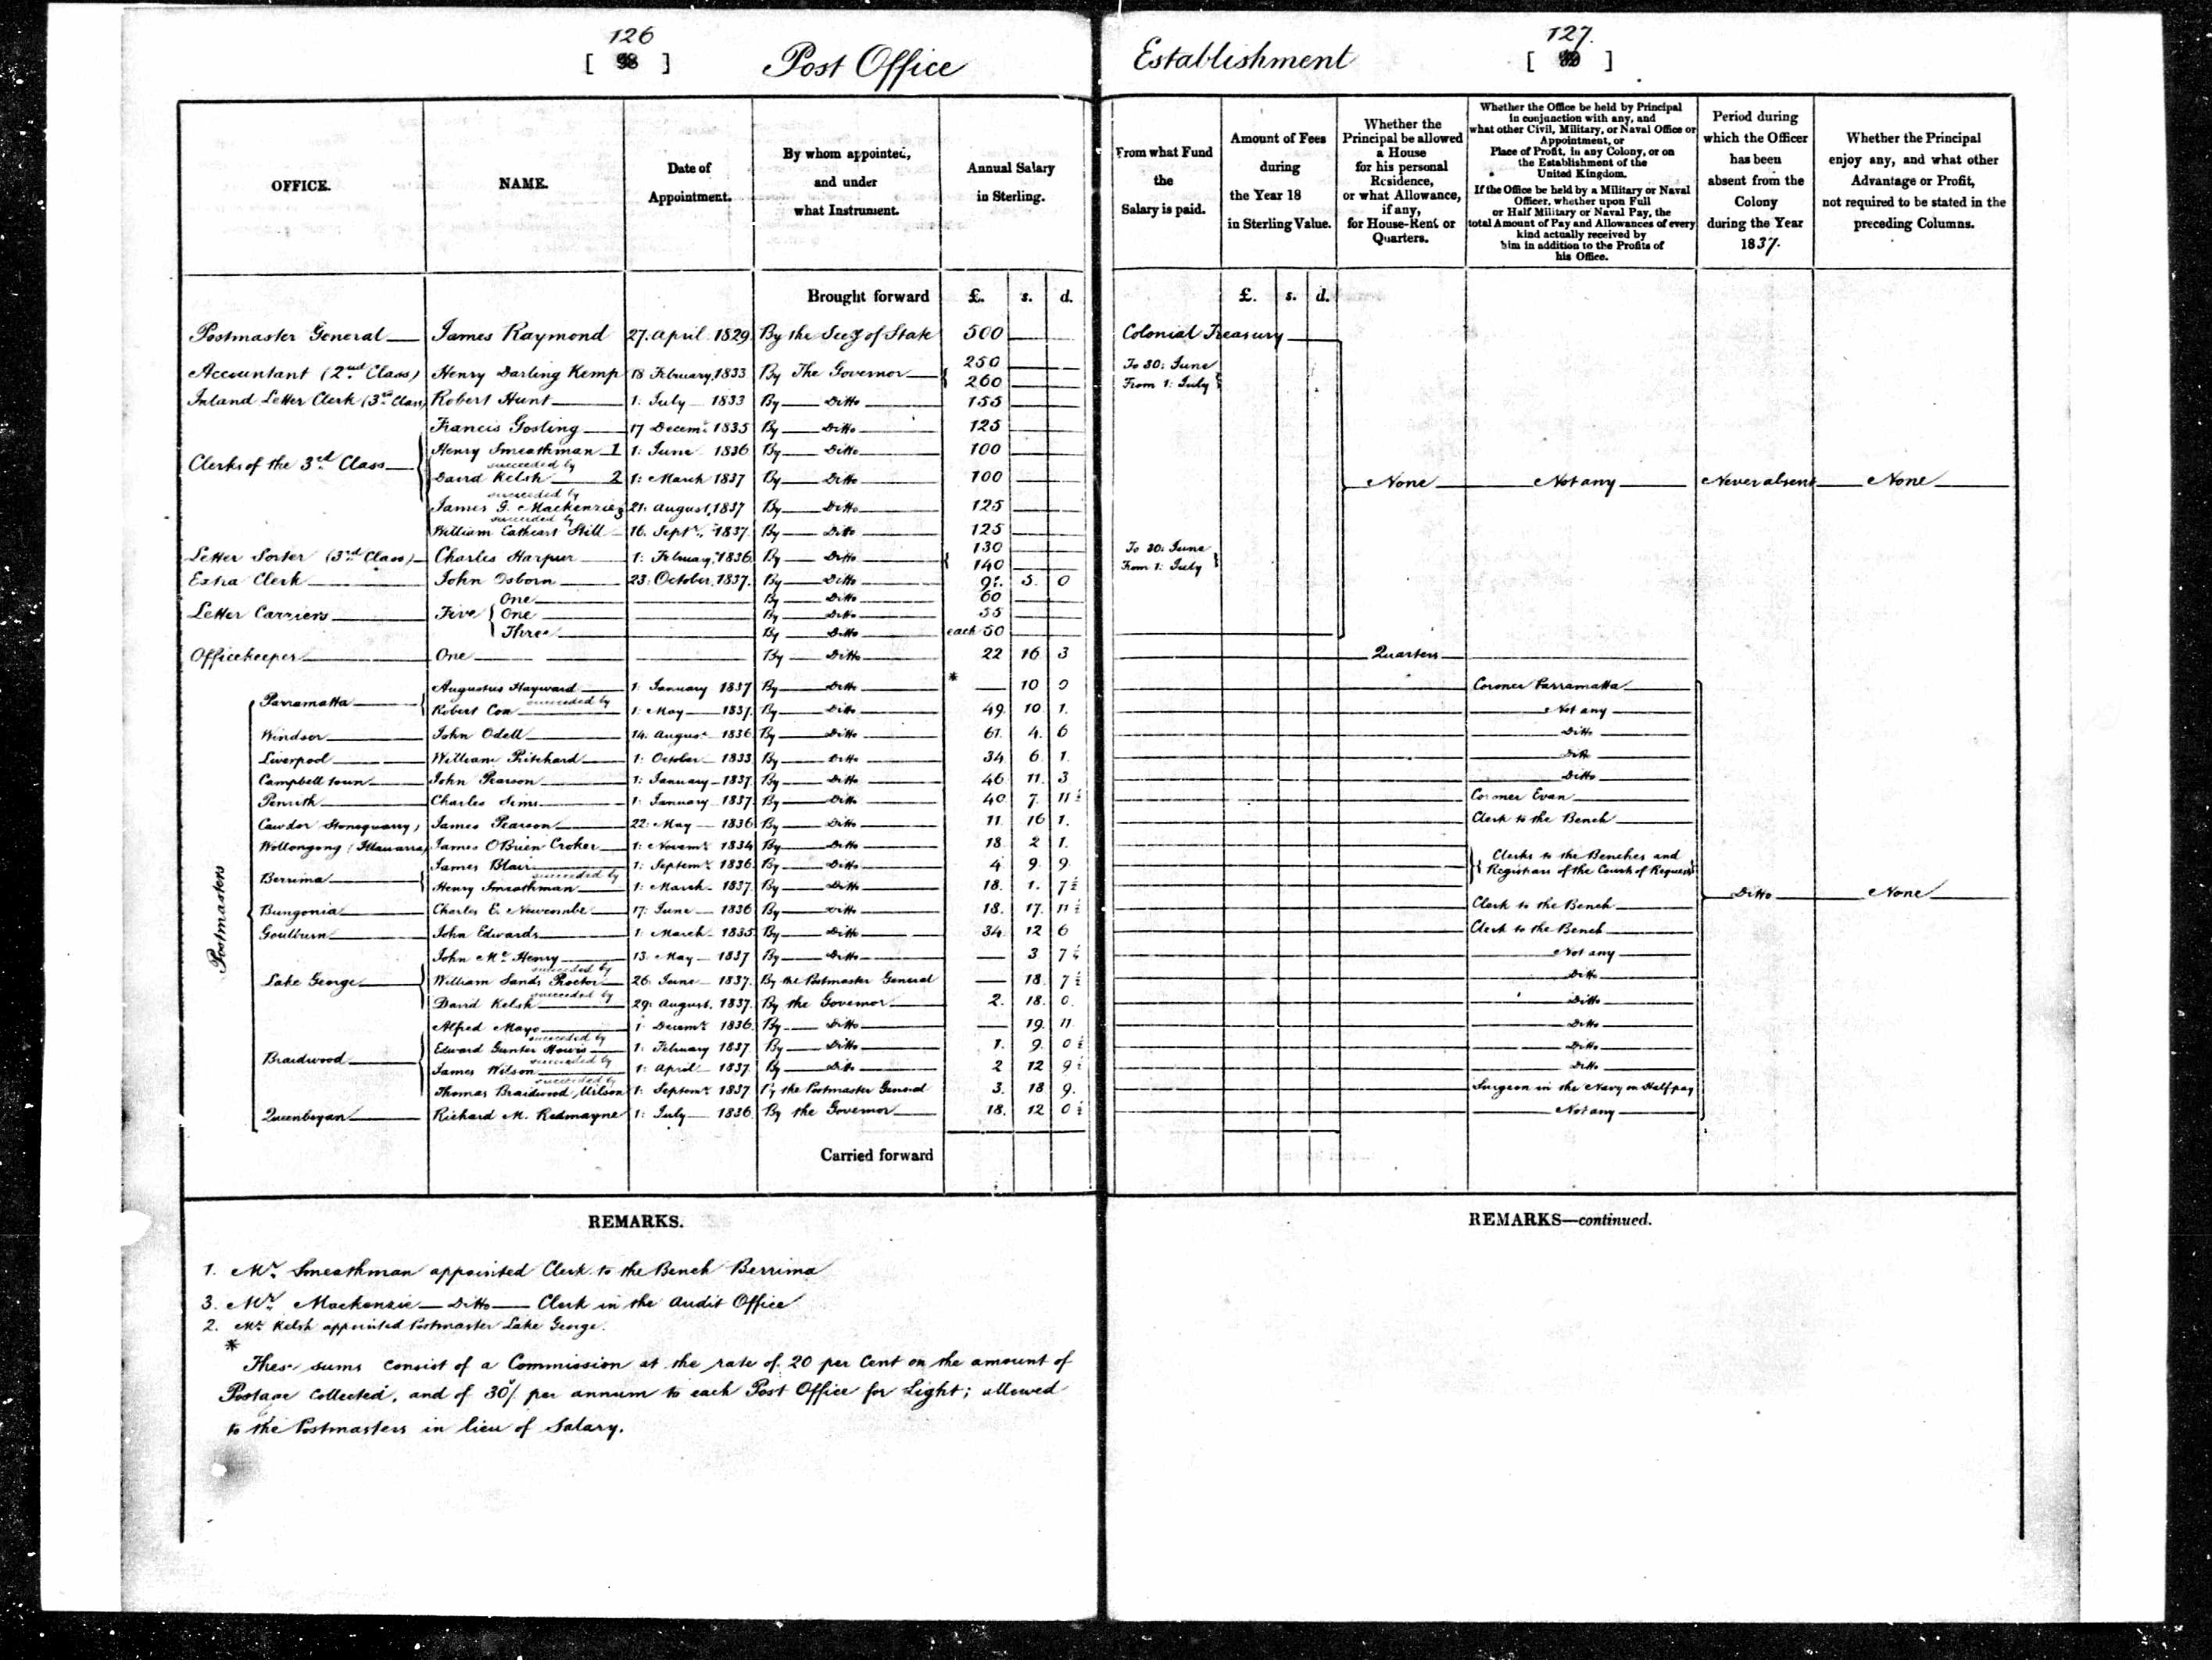 126
[ 98 ]
Post Office
OFFICE.
NAME.
Date of
Appointment.
By whom appointed,
and under
what Instrument.
Annual Salary
in Sterling.
Brought forward £. s. d.
Postmaster General James Raymond 27. April 1829 By the Secy of State 500
Accountant (2nd Class) Henry Darling Kemp 18 February, 1833 By The Governor 250
260
Inland Letter Clerk (3rd Class) Robert Hunt 1: July 1833 By Ditto 155
Clerks of the 3rd Class
Francis Gosling 17 Decemr. 1835 By Ditto 125
Henry Smeathman 1 1: June 1836 By Ditto 100
succeeded by
David Kelsh 2 1: March 1837 By Ditto 100
succeeded by
James G. Mackenzie 3 21: August, 1837 By Ditto 125
succeeded by
William Cathcart Still 16. Septr. 1837. By Ditto 125
Letter Sorter (3rd Class) Charles Harpur 1: February, 1836 By Ditto 130
140
Extra Clerk John Osborn 23: October, 1837. By Ditto 91. 5. 0
Letter Carriers Five
One By Ditto 60
One By Ditto 55
Three By Ditto each 50
Officekeeper One By Ditto 22 16 3
Postmasters
Parramatta Augustus Hayward 1: January 1837 By Ditto * 10 0
succeeded by
Robert Cox 1: May 1837. By Ditto 49. 10 1.
Windsor John Odell 14. August 1836 By Ditto 61. 4. 6
Liverpool William Pritchard 1: October 1833 By Ditto 34. 6. 1.
Campbell town John Pearson 1: January 1837. By Ditto 46 11. 3
Penrith Charles Sims 1: January 1837. By Ditto 40 7. 11½
Cawdor Stonequarry) James Pearson 22: May 1836 By Ditto 11. 16 1.
Wollongong (Illawarra) James O'Brien Croker 1: Novemr. 1834 By Ditto 18. 2 1.
Berrima James Blair 1: Septemr. 1836. By Ditto 4 9. 9.
succeeded by
Henry Smeathman 1: March 1837. By Ditto 18. 1. 7½
Bungonia Charles E. Newcombe 17: June 1836 By Ditto 18. 17. 11½
Goulburn John Edwards 1: March 1835 By Ditto 34. 12 6
Lake George John Mc. Henry 13: May 1837 By Ditto 3 7½
succeeded by
William Sands Proctor 26: June 1837. By the Postmaster General 18. 7½
succeeded by
David Kelsh 29: August. 1837. By the Governor 2. 18. 0.
Braidwood Alfred Mayo 1: Decemr. 1836. By Ditto 19. 11
succeeded by
Edward Gunter Howis 1: February 1837. By Ditto 1. 9. 0½
succeeded by
James Wilson 1: April 1837. By Ditto 2 12 9½
succeeded by
Thomas Braidwood Wilson 1: Septemr. 1837 By the Postmaster General 3. 18 9.
Queenbeyan Richard M. Redmayne 1: July 1836. By the Governor 18. 12 0½
Carried forward
REMARKS.
1. Mr. Smeathman appointed Clerk to the Bench Berrima
3. Mr. Mackenzie Ditto Clerk in the Audit Office
2. Mr. Kelsh appointed Postmaster Lake George.
* These sums consist of a Commission at the rate of 20 per Cent on the amount of
Postage Collected, and of 30/ per annum to each Post Office for Light; allowed
to the Postmasters in lieu of Salary.
127.
[ ]
Establishment
From what Fund
the
Salary is paid.
Amount of Fees
during
the Year 18
in Sterling Value.
Whether the
Principal be allowed
a House
for his personal
Residence,
or what Allowance,
if any,
for House-Rent or
Quarters.
Whether the Office be held by Principal
in conjunction with any, and
what other Civil, Military, or Naval Office or
Appointment, or
Place of Profit, in any Colony, or on
the Establishment of the
United Kingdom.
If the Office be held by a Military or Naval
Officer, whether upon Full
or Half Military or Naval Pay, the
total Amount of Pay and Allowances of every
kind actually received by
him in addition to the Profits of
his Office.
Period during
which the Officer
has been
absent from the
Colony
during the Year
1837.
Whether the Principal
enjoy any, and what other
Advantage or Profit,
not required to be stated in the
preceding Columns.
£. s. d.
Colonial Treasury
To 30: June
From 1: July
None Not any Never absent None
To 30: June
From 1: July
Quarters
Coroner Parramatta
Not any
Ditto
Ditto
Ditto
Coroner Evan
Clerk to the Bench
Clerks to the Benches and
Registrars of the Courts of Requests
Ditto None
Clerk to the Bench
Clerk to the Bench
Not any
Ditto
Ditto
Ditto
Ditto
Ditto
Surgeon in the Navy on Half pay
Not any
REMARKS—continued.